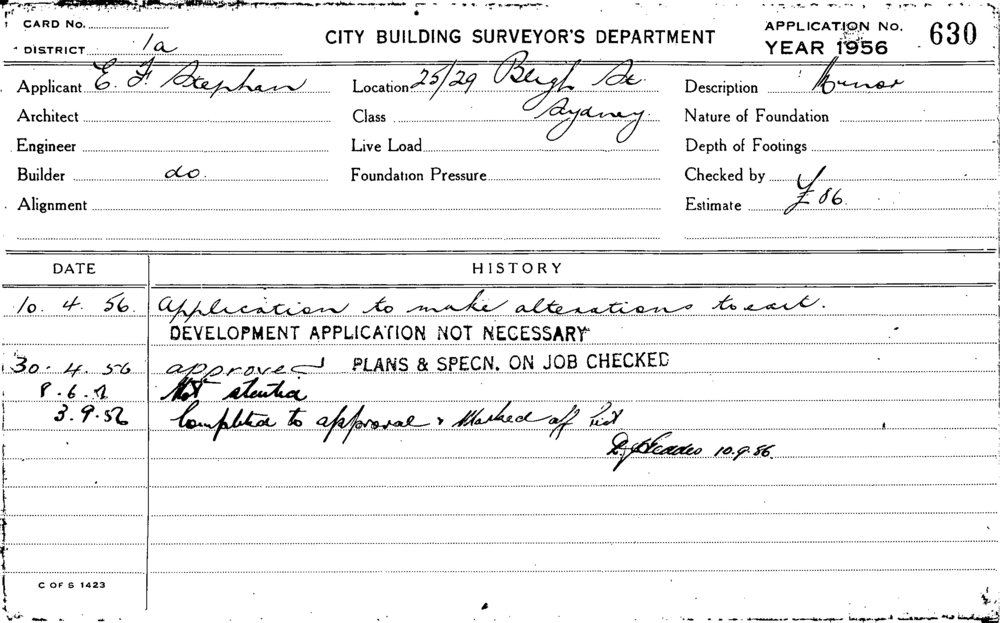 CARD No.
DISTRICT 1a
CITY BUILDING SURVEYOR'S DEPARTMENT
APPLICATION No. 630
YEAR 1956
Applicant E. F. Stephan Location 25/29 Bligh St. Description Minor
Architect Class Sydney. Nature of Foundation
Engineer Live Load Depth of Footings
Builder do. Foundation Pressure Checked by
Alignment Estimate £86.
DATE HISTORY
10. 4. 56. Application to make alterations to exit.
DEVELOPMENT APPLICATION NOT NECESSARY
30. 4. 56 approved PLANS & SPECN. ON JOB CHECKED
8. 6. Not started
3. 9. 56 Completed to approval & Marked off list
10.9.56.
C OF S 1423